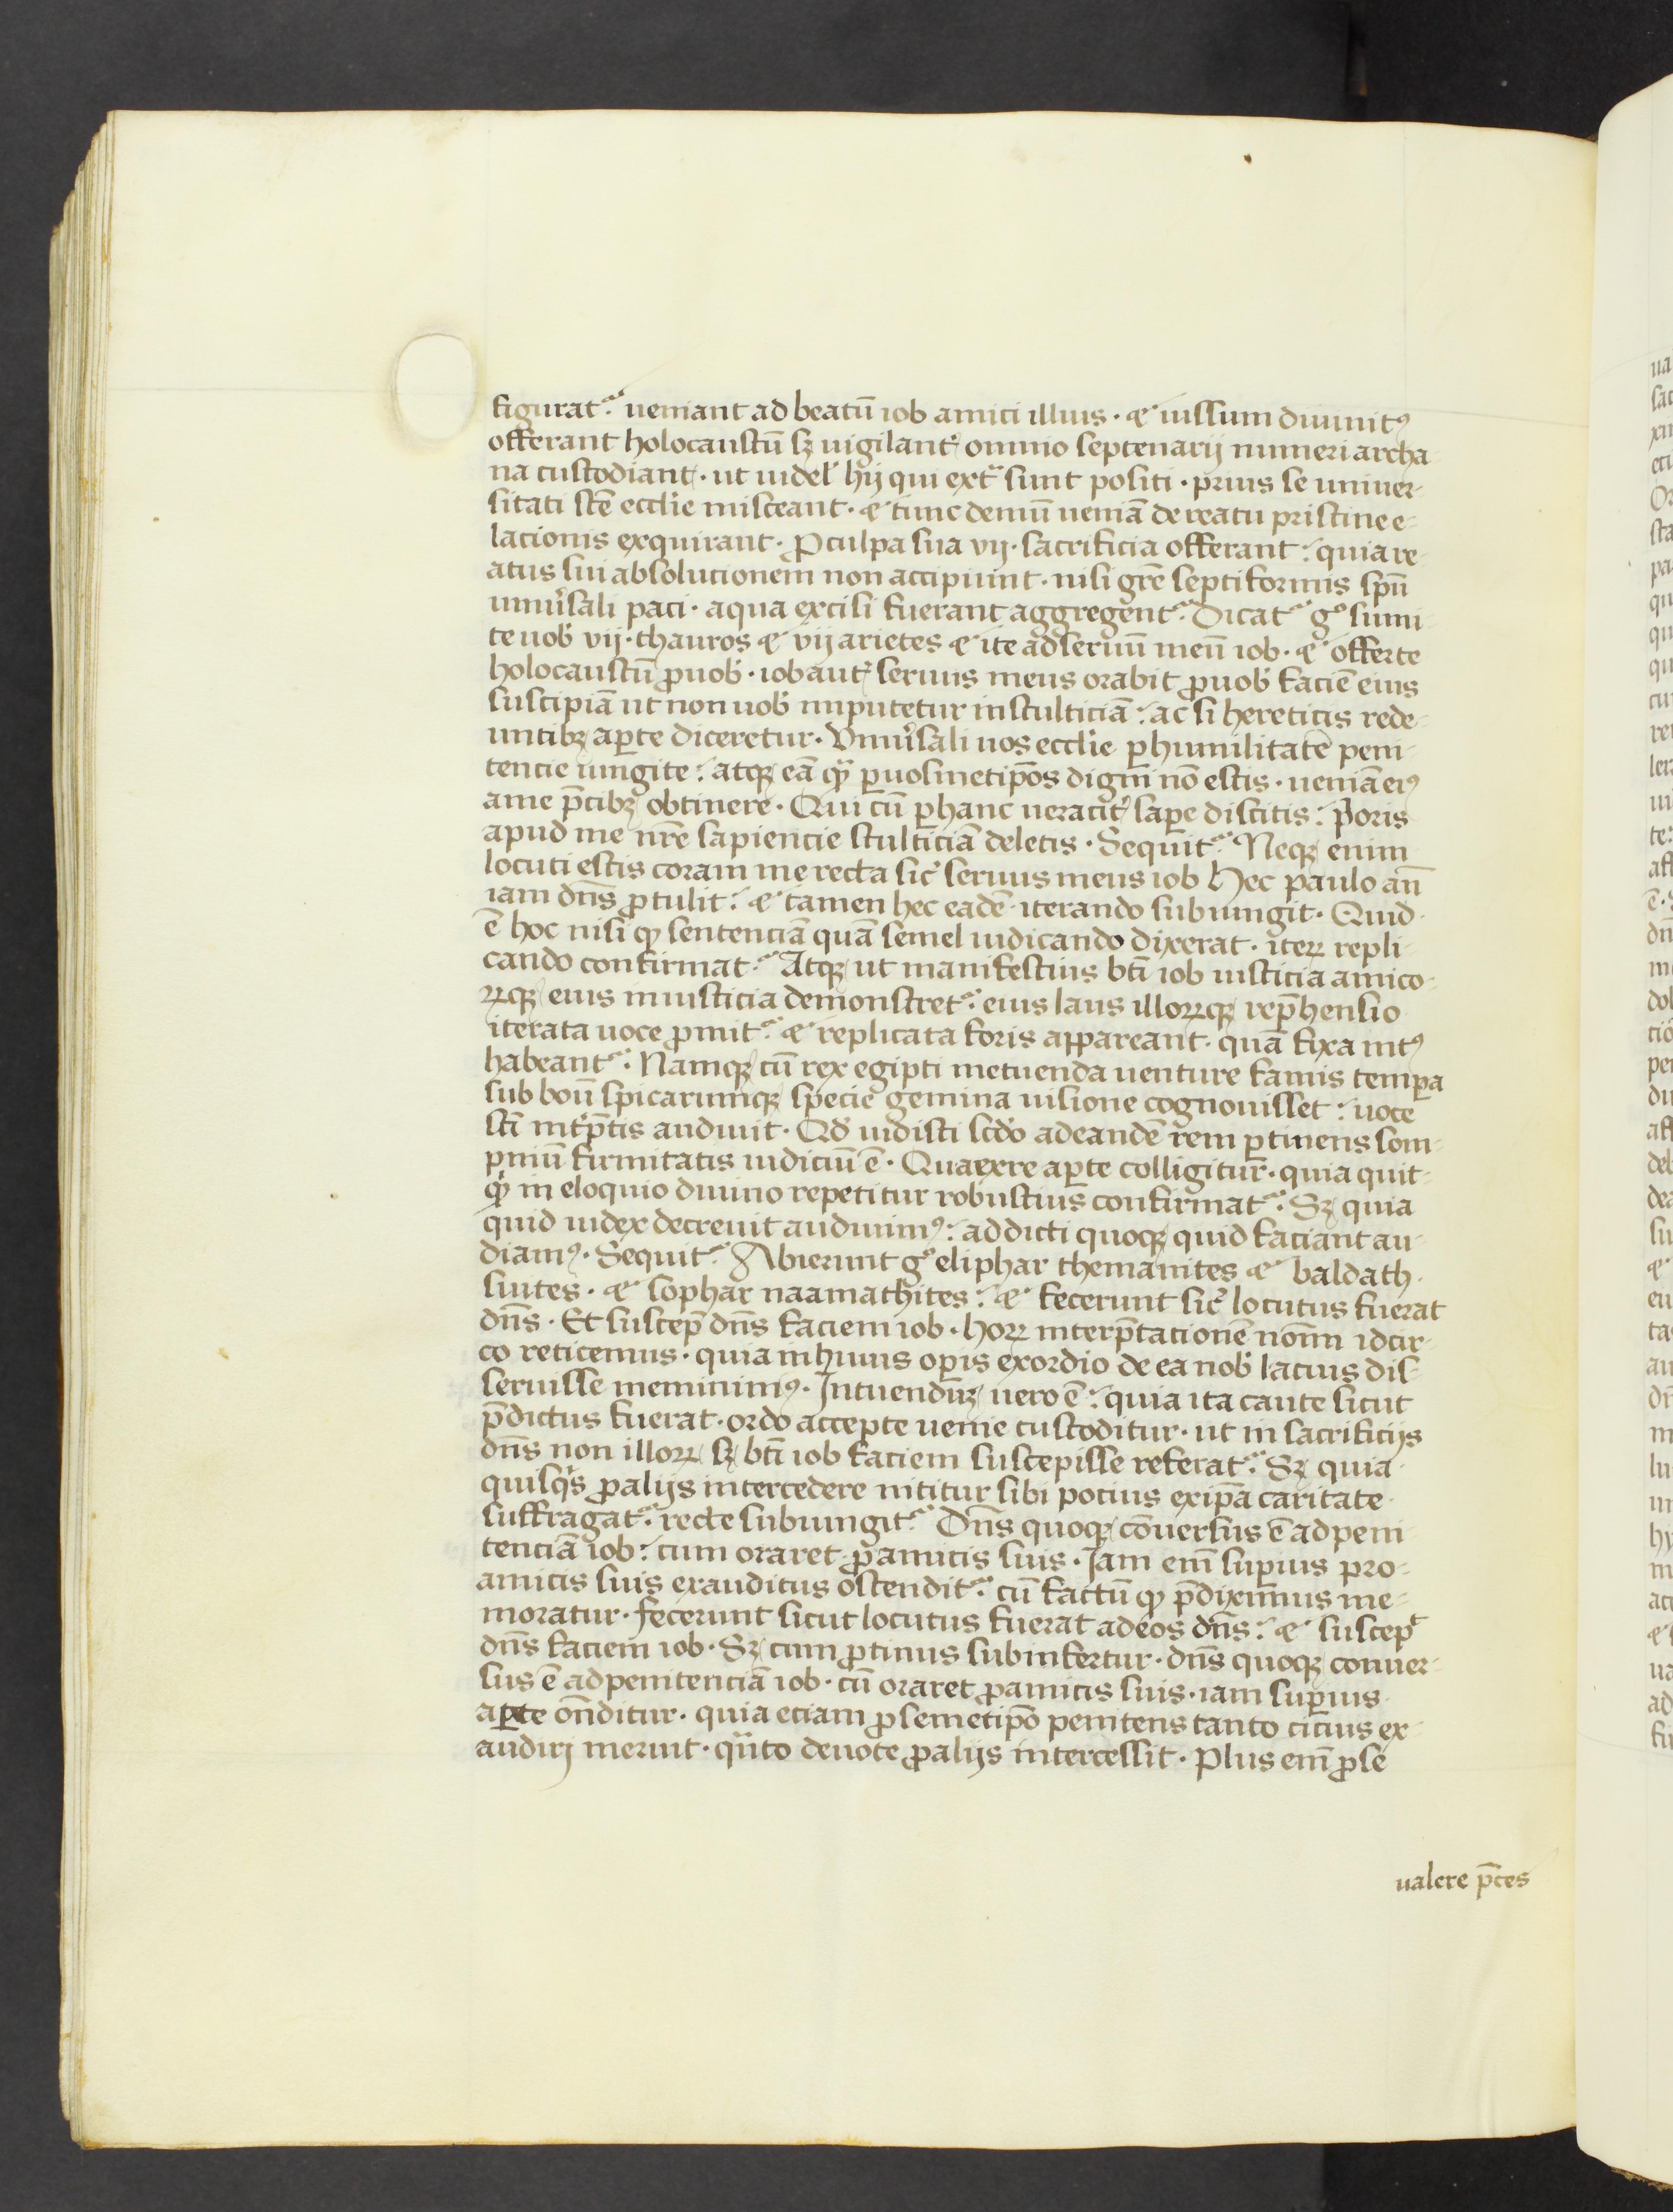 figurat᷑ ueniant ad beatū iob amici illius · & iussum diuinitꝰ
offerant holocaustū sꝫ uigilant᷑ omnio septenarij numeri archa
na custodiant · ut uidel᷑ hij qui ext᷑ sunt positi · prius se uniuer-
sitati scē ecclie misceant · & tunc demū ueniā de reatu pristine e-
lacionis exquirant · Ꝓ culpa sua vij · sacrificia offerant : quia re-
atus sui absolucionem non accipiunt · nisi grē septiformis spū
uniu᷑sali paci · a qua excisi fuerant aggregent᷑ Dicat᷑ gͦ sumi-
te uob᷑ vij · thauros & vij arietes & ite ad seruū meū iob · & offerte
holocaustū ꝓ uob᷑ · iob aut᷑ seruus meus orabit ꝓ uob᷑ faciē eius
suscipiā ut non uob᷑ imputetur in stulticiā : ac si hereticis rede-
untibꝫ aꝑte diceretur · Vniu᷑sali uos ecclie ꝑ humilitatē peni-
tencie iungite : atqꝫ eā qͣ ꝑ uosmetip̄os digni nō estis · ueniā eiꝰ
a me p̄cibꝫ obtinere · Qui cū ꝑ hanc ueracit᷑ saꝑe discitis : p᷑oris
apud me nr̄e sapiencie stulticiā deletis · Sequit᷑ Neqꝫ enim
locuti estis coram me recta sic᷑ seruus meus iob Hec paulo an̄
iam dn̄s ꝓtulit : & tamen hec eadē iterando subiungit · Quid
ē hoc nisi ꝙ sentenciā quā semel iudicando dixerat · iteꝝ repli-
cando confirmat᷑ Atqꝫ ut manifestius bt̄i iob iusticia amico-
ꝝqꝫ eius iniusticia demonstret᷑ eius laus illoꝝqꝫ rep̄hensio
iterata uoce ꝓmit᷑ & replicata foris appareant · quā fixa intꝰ
habeant᷑ Namqꝫ cū rex egipti metuenda uenture famis tempa
sub boū spicarumqꝫ specie gemina uisione cognouisset : uoce
scī int᷑p̄tis audiuit · Qd᷑ uidisti scd᷑o ad eandē rem ꝑtinens som-
pniū firmitatis iudiciū ē · Qua ex re aꝑte colligitur · quia quit-
qͣ in eloquio diuino repetitur robustius confirmat᷑ Sꝫ quia
quid iudex decreuit audiuimꝰ : addicti quoqꝫ quid faciant au-
diamꝰ · Sequit᷑ Abierunt gͦ eliphar themanites & baldath
suites · & sophar naamathites : & fecerunt sic᷑ locutus fuerat
dn̄s · Et suscep̄ dn̄s faciem iob · Hoꝝ interp̄tacionē noīm idcir-
co reticemus · quia in huius oꝑis exordio de ea nob᷑ lacius dis-
seruisse meminimꝰ · Intuendūꝫ uero ē : quia ita caute sicut
p̄dictus fuerat · ordo accepte uenie custoditur · ut in sacrificijs
dn̄s non illoꝝ sꝫ bt̄i iob faciem suscepisse referat᷑ Sꝫ quia
quisqͥs ꝓ alijs intercedere nititur sibi pocius ex ip̄a caritate
suffragat᷑ recte subiungit᷑ Dn̄s quoqꝫ cōuersus ē ad peni-
tenciā iob : cum oraret ꝓ amicis suis · Iam em̄ suꝑius pro
amicis suis exauditus ostendit᷑ cū factū ꝙ p̄diximus me-
moratur · fecerunt sicut locutus fuerat ad eos dn̄s : & suscepͭ
dn̄s faciem iob · Sꝫ cum ꝓtinus subinfertur · dn̄s quoqꝫ conuer-
sus ē ad penitenciā iob · cū oraret ꝓ amicis suis · iam suꝑius
aꝑte on̄ditur · quia eciam ꝓ semetip̄o penitens tanto cicius ex-
audiri meruit · qͣnto deuote ꝓ alijs intercessit · Plus em̄ ꝓ se
ualere p̄ces